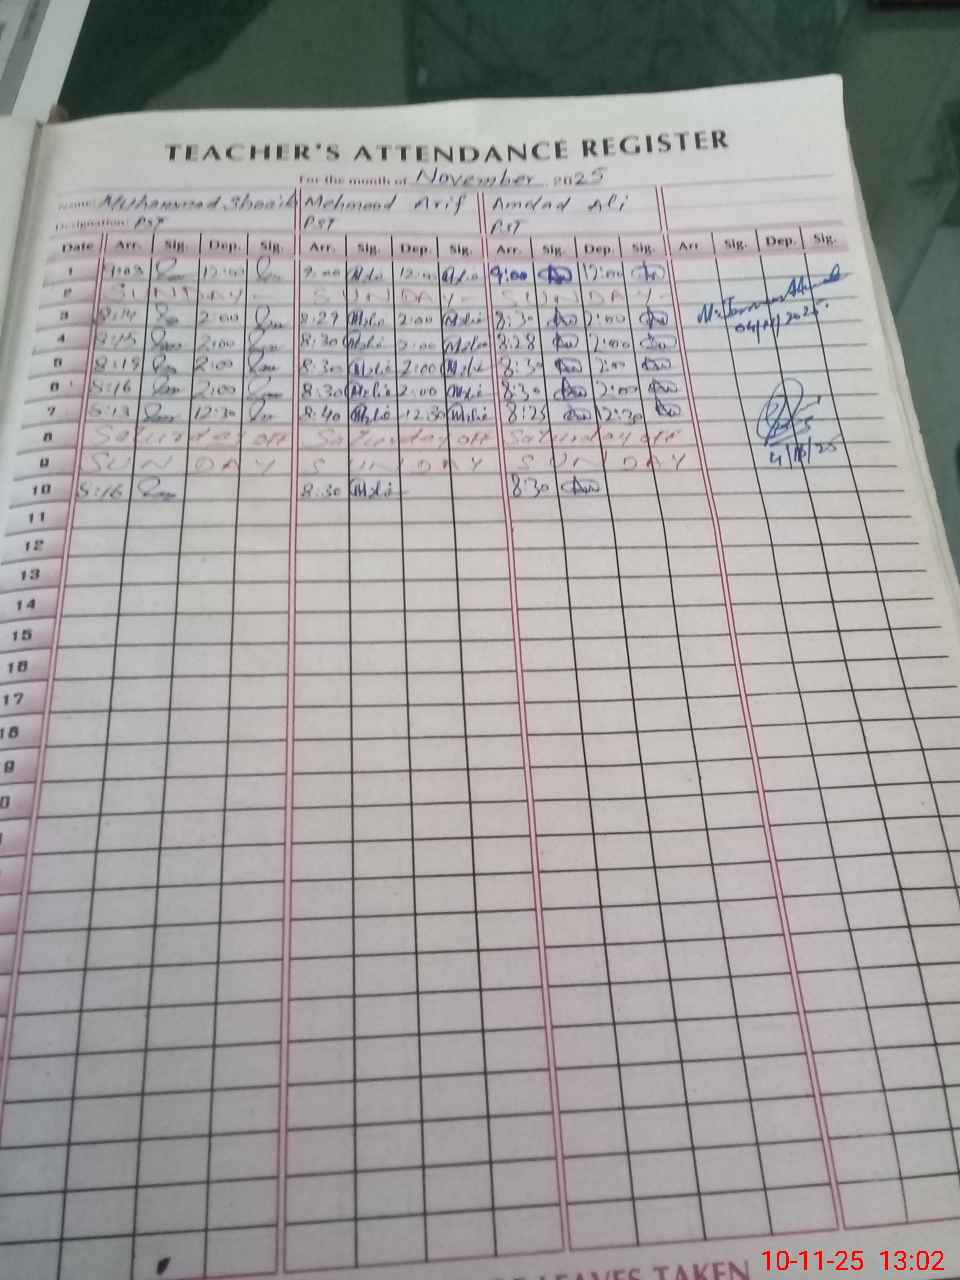 TEACHER'S ATTENDANCE REGISTER
For the month of November 2025
Name: Muhammad Shoaib Mehmood Arif Amdad Ali
Designation: PST PST PST
Date Arr. Sig. Dep. Sig. Arr. Sig. Dep. Sig. Arr. Sig. Dep. Sig. Arr Sig. Dep. Sig.
1 9:03 12:00 9:00 12:00 9:00 12:00
2 SUNDAY- SUNDAY- SUNDAY-
3 8:14 2:00 8:29 2:00 8:30 2:00
04/11/2025
4 2:00 8:30 2:00 8:28 2:00
5 2:00 8:30 2:00 8:30 2:00
6 8:16 2:00 8:30 2:00 8:30 2:00
7 8:13 12:30 8:40 12:30 8:25 12:30
8 Saturday off Saturday off Saturday off
9 SUNDAY SUNDAY SUNDAY
10 8:16 8:30 8:30
11
12
13
14
15
16
17
18
9
0
LEAVES TAKEN
10-11-25 13:02